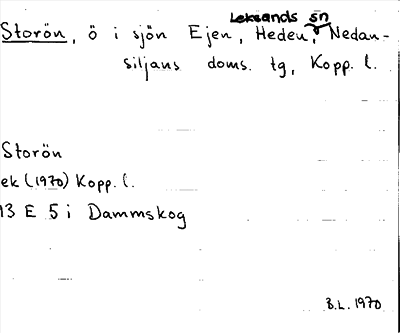 Leksands sn
Storön, ö i sjön Ejen, Heden, Nedan-
siljans doms. tg, Kopp. l.
Storön
ek (1970) Kopp. l.
13 E 5 i Dammskog
B.L. 1970